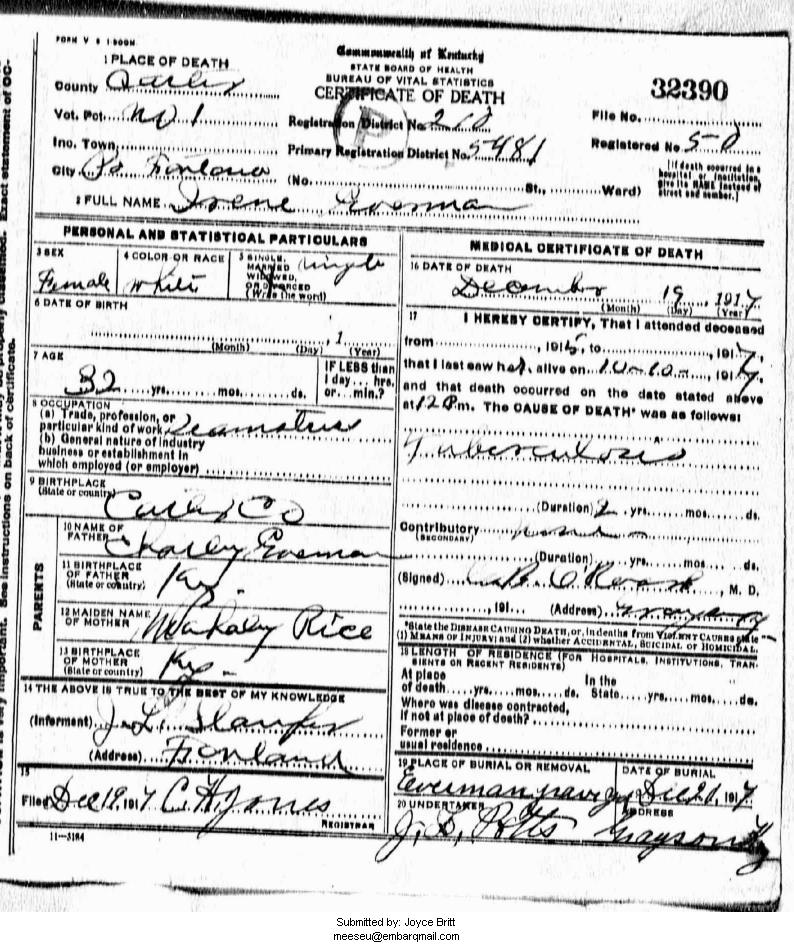 FORM V S 1 500M
Commonwealth of Kentucky
STATE BOARD OF HEALTH
BUREAU OF VITAL STATISTICS
CERTIFICATE OF DEATH
32390
1 PLACE OF DEATH
County Carter
Vot. Pct. No 1
Inc. Town
City
Registration District No. 210
Primary Registration District No. 5481
(No. St., Ward)
File No.
Registered No 50
[If death occurred in a hospital or institution, give its NAME instead of street and number.]
2 FULL NAME Irene Everman
PERSONAL AND STATISTICAL PARTICULARS
3 SEX
Female
4 COLOR OR RACE
White
5 SINGLE, MARRIED WIDOWED, OR DIVORCED (Write the word)
single
6 DATE OF BIRTH
, 1
(Month) (Day) (Year)
7 AGE
32 yrs. mos. ds.
IF LESS than 1 day... hrs. or... min.?
8 OCCUPATION
(a) Trade, profession, or particular kind of work Seamstress
(b) General nature of industry business or establishment in which employed (or employer)
9 BIRTHPLACE
(State or country)
Carter Co
PARENTS
10 NAME OF FATHER
Charley Everman
11 BIRTHPLACE OF FATHER
(State or country)
Ky.
12 MAIDEN NAME OF MOTHER
Rice
13 BIRTHPLACE OF MOTHER
(State or country)
Ky.
14 THE ABOVE IS TRUE TO THE BEST OF MY KNOWLEDGE
(Informant) J. L.
(Address)
15
Filed Dec 19, 1917 C H Jones
REGISTRAR
11-3184
MEDICAL CERTIFICATE OF DEATH
16 DATE OF DEATH
December 19, 1917
(Month) (Day) (Year)
17 I HEREBY CERTIFY, That I attended deceased
from , 1915, to , 1917,
that I last saw her alive on 10-10-, 1917
and that death occurred on the date stated above
at 12 P.m. The CAUSE OF DEATH* was as follows:
Tuberculosis
(Duration) 2 yrs. mos. ds.
Contributory
(SECONDARY)
(Duration) yrs. mos. ds.
(Signed) , M. D.
, 191 (Address)
*State the DISEASE CAUSING DEATH, or, in deaths from VIOLENT CAUSES state (1) MEANS OF INJURY and (2) whether ACCIDENTAL, SUICIDAL or HOMICIDAL.
18 LENGTH OF RESIDENCE (FOR HOSPITALS, INSTITUTIONS, TRANSIENTS OR RECENT RESIDENTS)
At place of death yrs. mos. ds. In the State yrs. mos. ds.
Where was disease contracted, if not at place of death?
Former or usual residence
19 PLACE OF BURIAL OR REMOVAL
Everman
DATE OF BURIAL
Dec 21, 1917
20 UNDERTAKER
Potts
ADDRESS
Grayson Ky
Exact statement of OC-
properly classified.
See instructions on back of certificate.
is very important.
Submitted by: Joyce Britt
meeseu@embarqmail.com